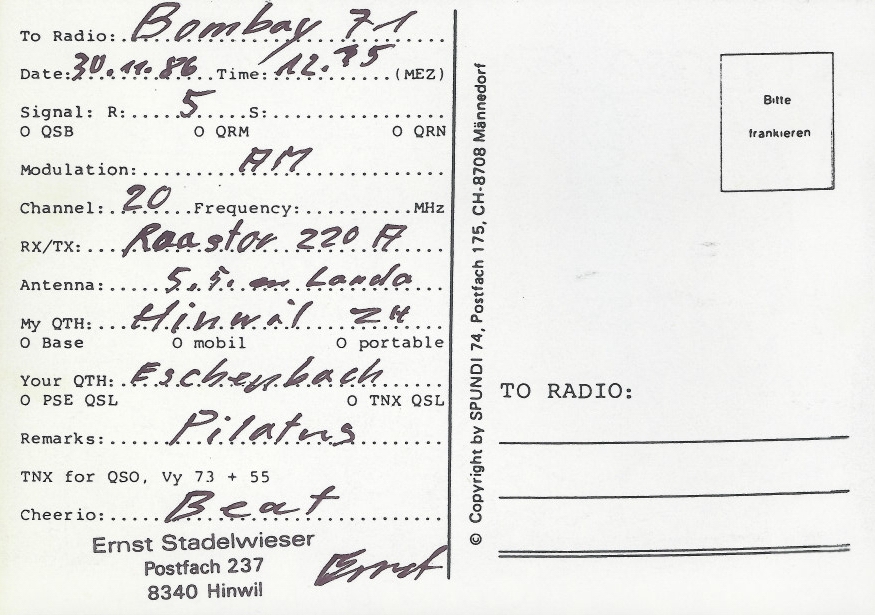 To Radio: Bombay 71
Date: 30.11.86 Time: 12.35 (MEZ)
Signal: R: 5 S:
O QSB O QRM O QRN
Modulation: AM
Channel: 20 Frequency: MHz
RX/TX: Raastor 220 A
Antenna: 5.5. m Landa
My QTH: Hinwil ZH
O Base O mobil O portable
Your QTH: Eschenbach
O PSE QSL O TNX QSL
Remarks: Pilatus
TNX for QSO, Vy 73 + 55
Cheerio: Beat
Ernst Stadelwieser
Postfach 237
8340 Hinwil
Ernst
© Copyright by SPUNDI 74, Postfach 175, CH-8708 Männedorf
Bitte
frankieren
TO RADIO: